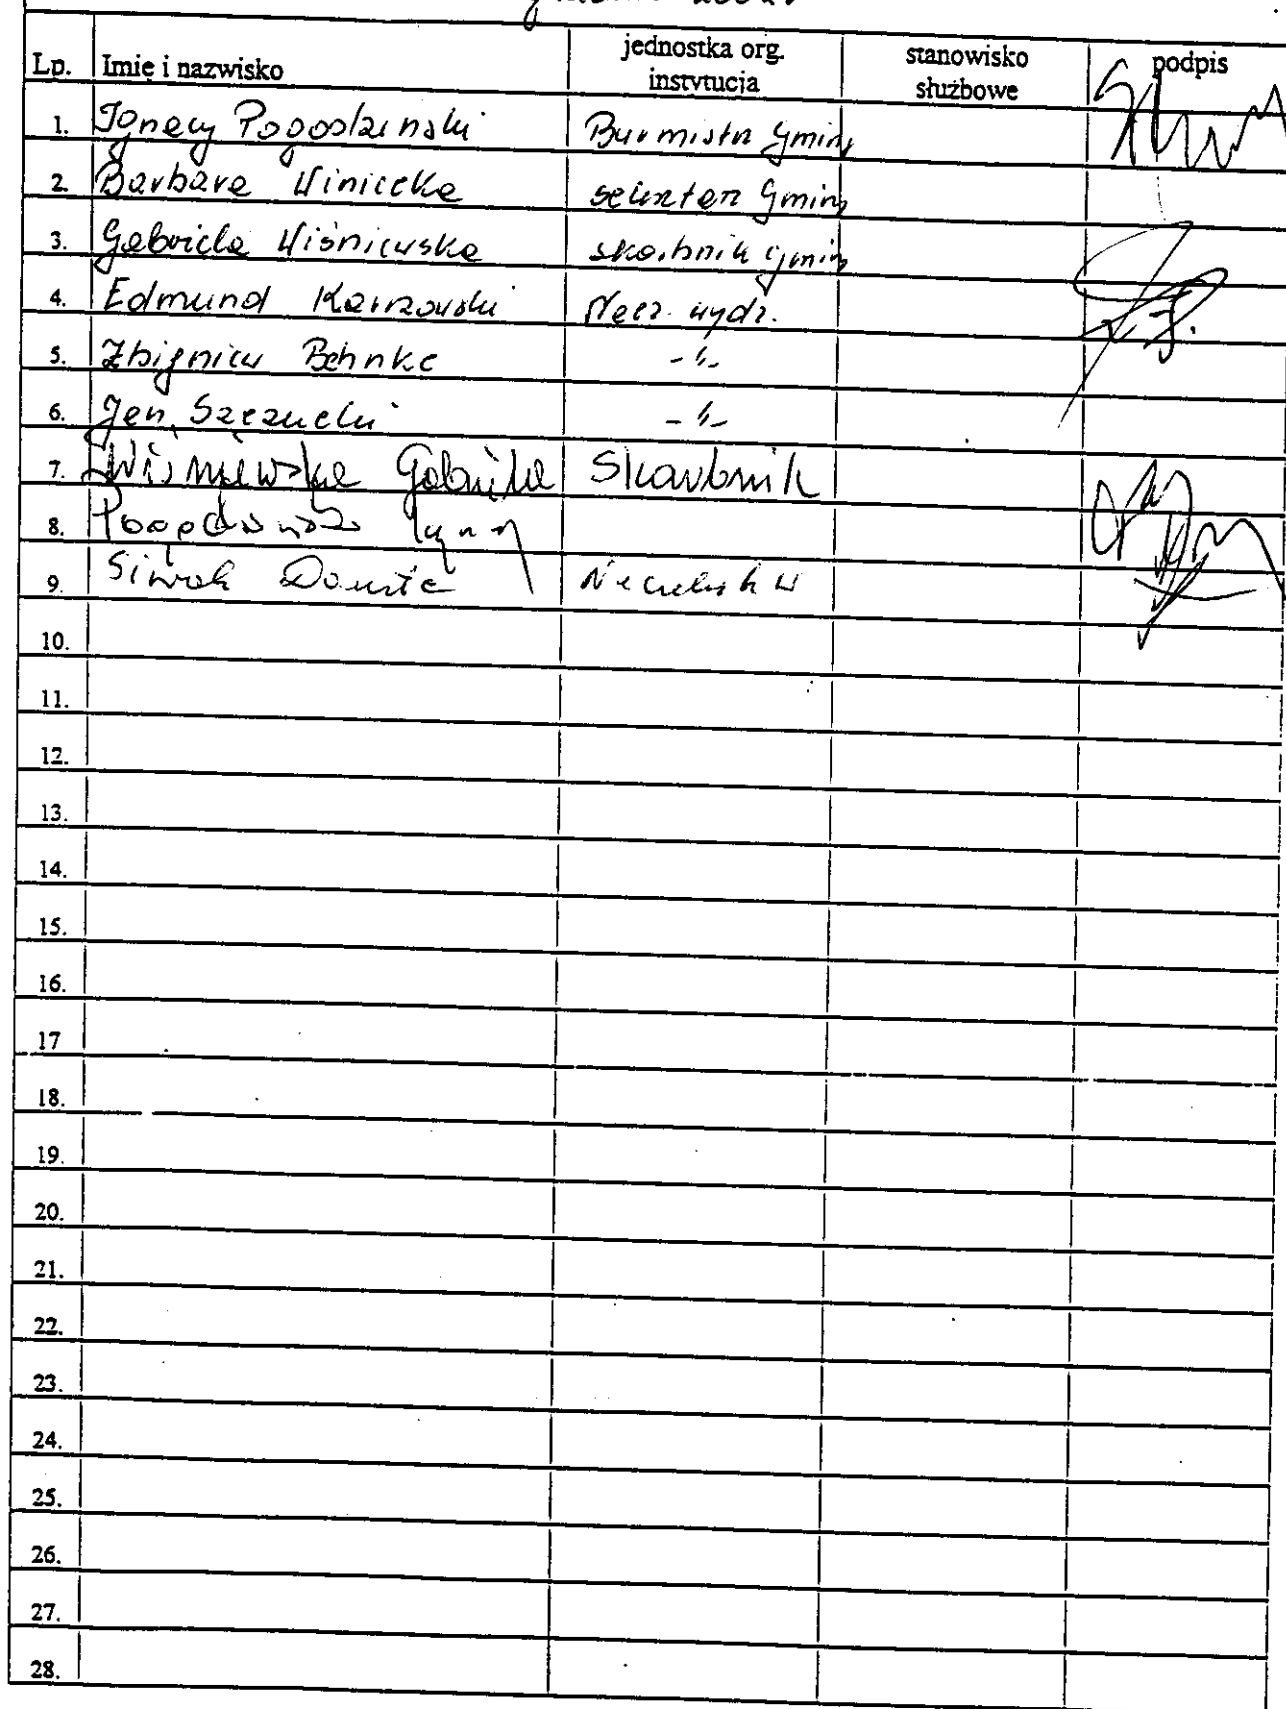 Lp. Imię i nazwisko jednostka org. instytucja stanowisko służbowe podpis
1. Ignacy Pogodziński Burmistrz Gminy
2. Barbara Winiecka sekretarz Gminy
3. Gabriela Wiśniewska skarbnik gminy
4. Edmund Karzowski Nacz. wydz.
5. Zbigniew Behnke -"-
6. Jan Szczucki -"-
7. Wiśniewska Gabriela Skarbnik
8.
9. Siwak Danuta
10.
11.
12.
13.
14.
15.
16.
17
18.
19.
20.
21.
22.
23.
24.
25.
26.
27.
28.